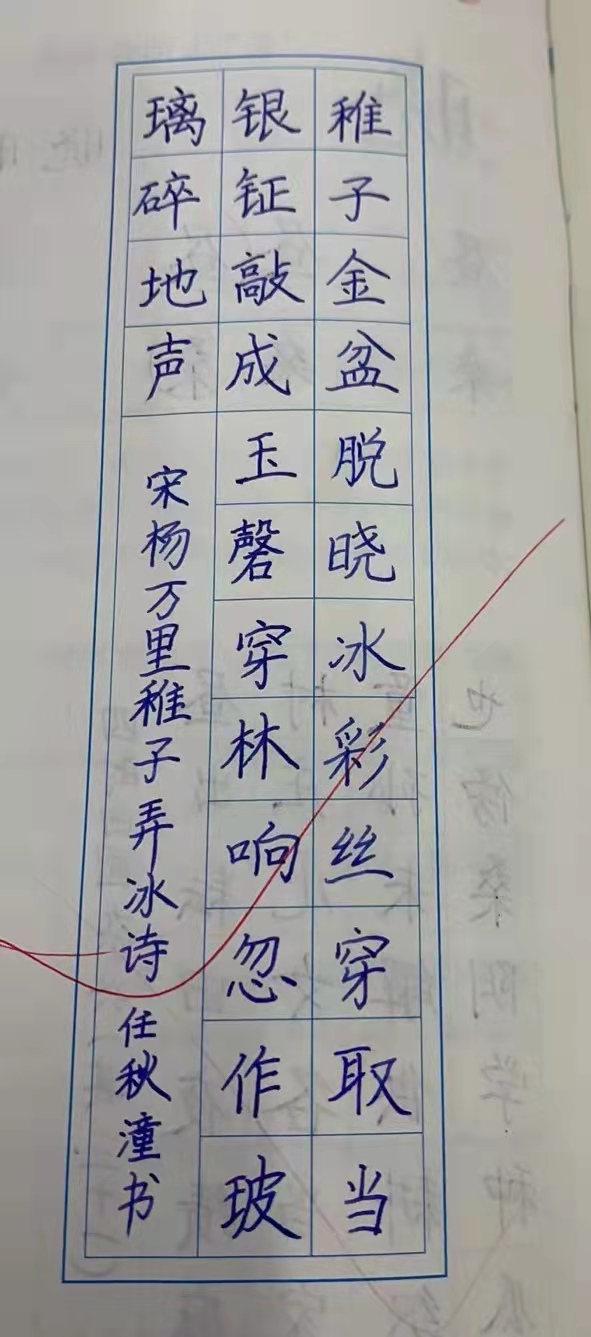 稚子金盆脱晓冰彩丝穿取当
银钲敲成玉磬穿林响忽作玻
璃碎地声
宋杨万里稚子弄冰诗 任秋潼书